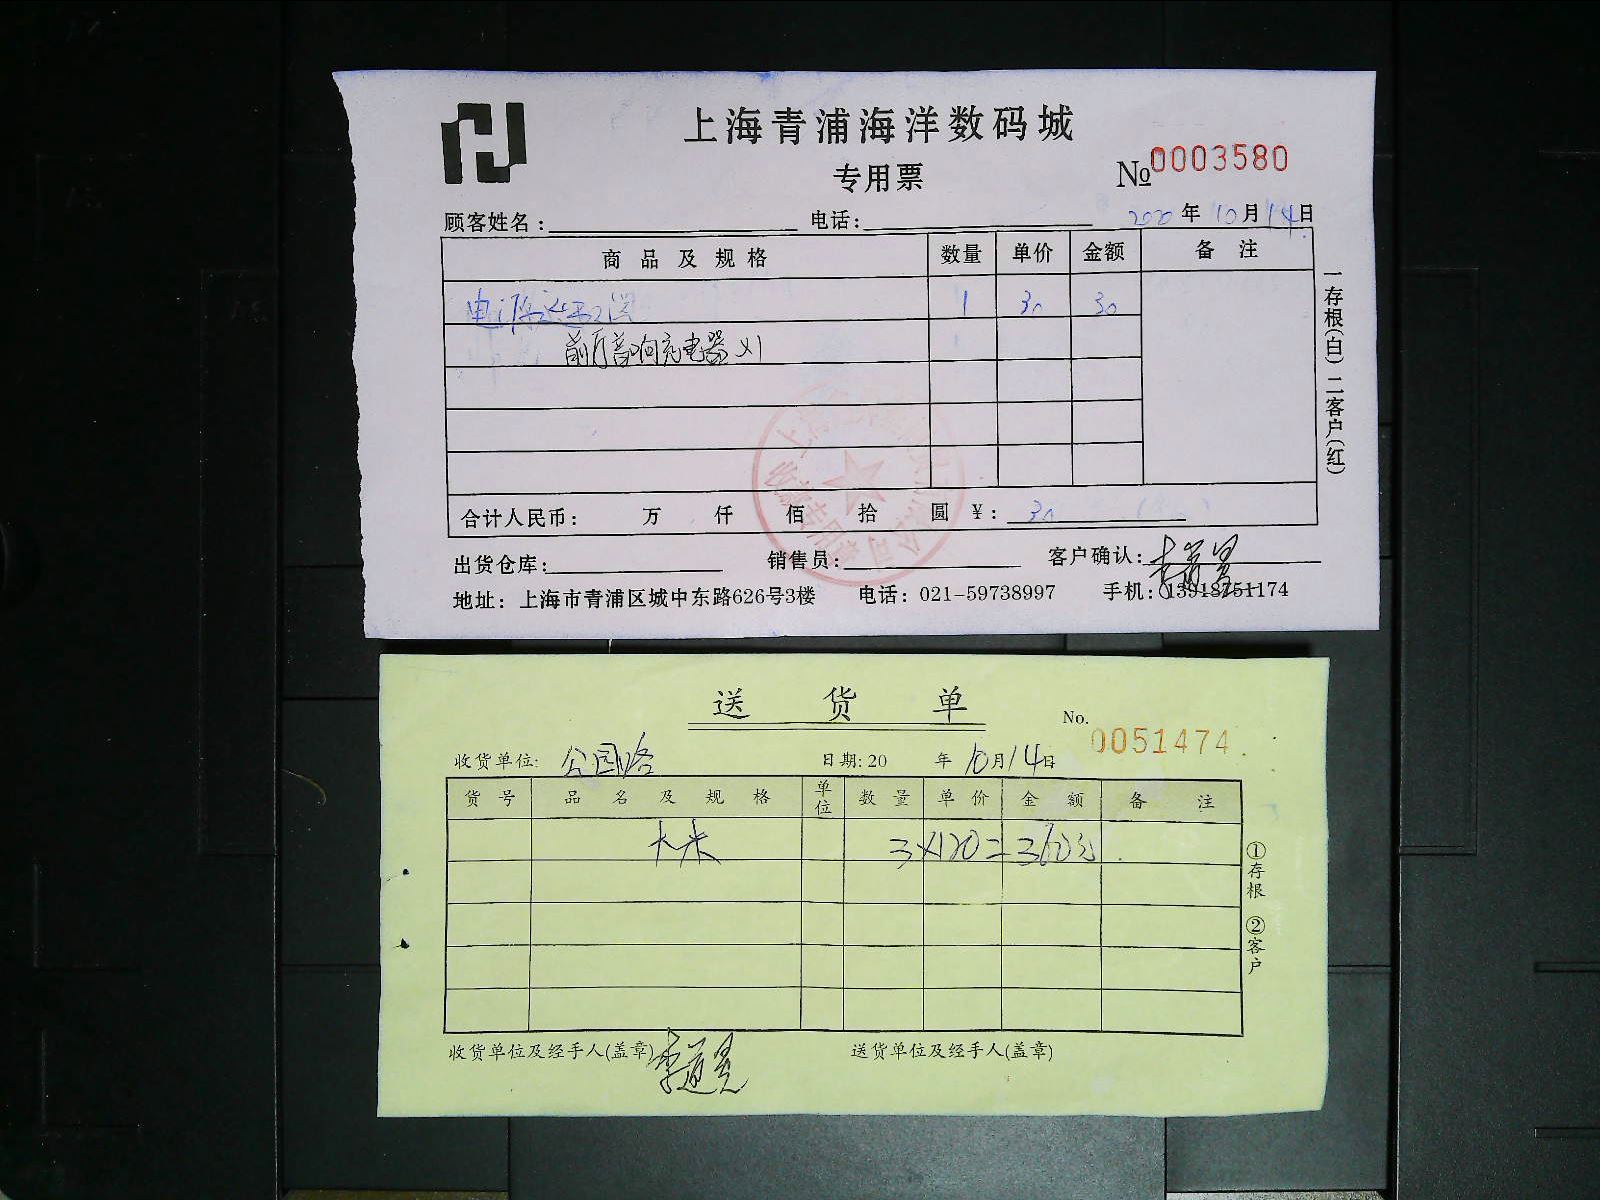 上海青浦海洋数码城
专用票
№0003580
顾客姓名: 电话: 2020年10月14日
商品及规格 数量 单价 金额 备注
电源适配器 1 30 30
前厅音响充电器X1
合计人民币: 万 仟 佰 拾 圆 ¥: 30
出货仓库: 销售员: 客户确认:
地址: 上海市青浦区城中东路626号3楼 电话: 021-59738997 手机: 13918751174
一存根(白)二客户(红)
送货单
No. 0051474
收货单位: 公园路 日期: 20 年10月14日
货号 品名及规格 单位 数量 单价 金额 备注
大米 3X120=360元
①存根 ②客户
收货单位及经手人(盖章) 送货单位及经手人(盖章)